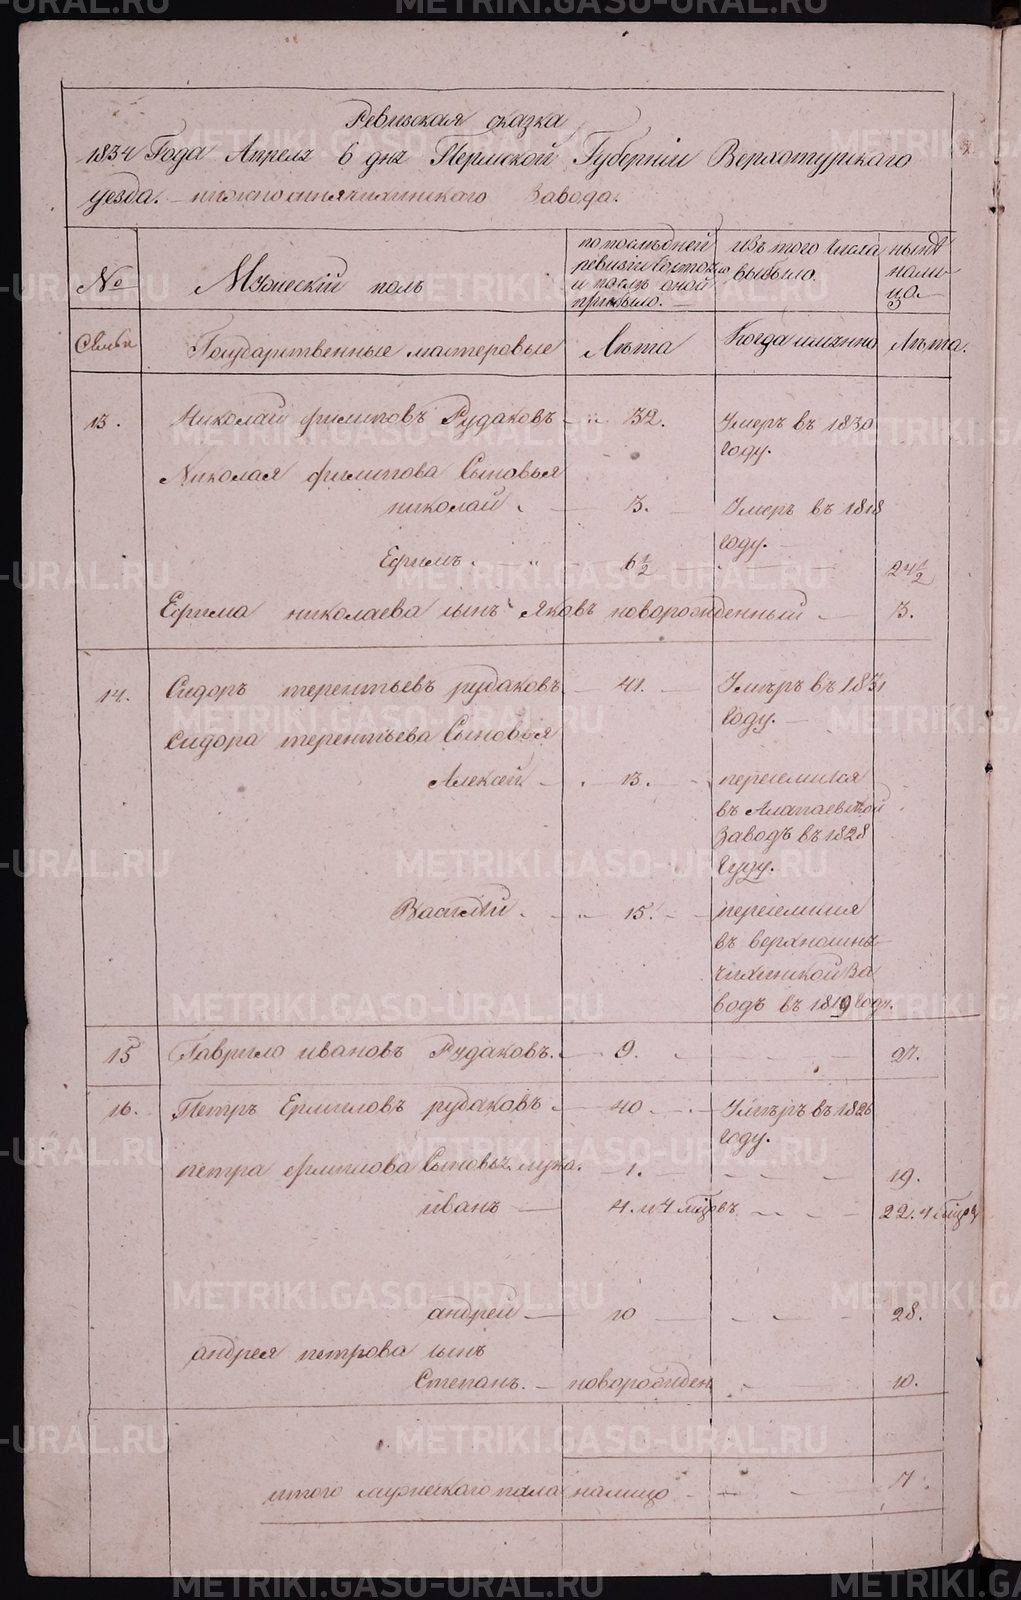 Ревизская сказка
1834 Года Апреля 6 дня Пермской Губернии Верхотурскаго
уезда. нижносинячихинскаго Завода.
№ Мужескій полъ
по последней ревизіи состояло и после оной прибыло.
изъ того числа выбыло.
ныне налицо
Семьи Государственные мастеровые Лъта Когда имянно Лъта.
13. Николай филиповъ Рудаковъ 32. Умеръ въ 1830
году.
Николая филипова Сыновья
николай 3. Умеръ въ 1818
году.
Ефимъ. 6 1/2 24 1/2
Ефима николаева сынъ Яковъ новорожденный 3.
14. Сидоръ терентьевъ рудаковъ 41. Умъръ въ 1831
году.
Сидора терентьева Сыновья
Алексей 13. переселился
въ Алапаевской
Заводъ въ 1828
году.
Василій 15. переселился
въ верхносиня
чихинской За
водъ въ 1819 году.
15 Гаврило ивановъ Рудаковъ. 9. 27.
16. Петръ Ермиловъ рудаковъ 40 Умъръ въ 1826
году.
петра ермилова Сыновья лука. 1. 19.
иванъ 4. и 4 мъцовъ 22. 4 мъцов
андрей 10 28.
андрея петрова сынъ
Степанъ. новорожден 10.
итого мужескаго пола налицо 7.
METRIKI.GASO-URAL.RU